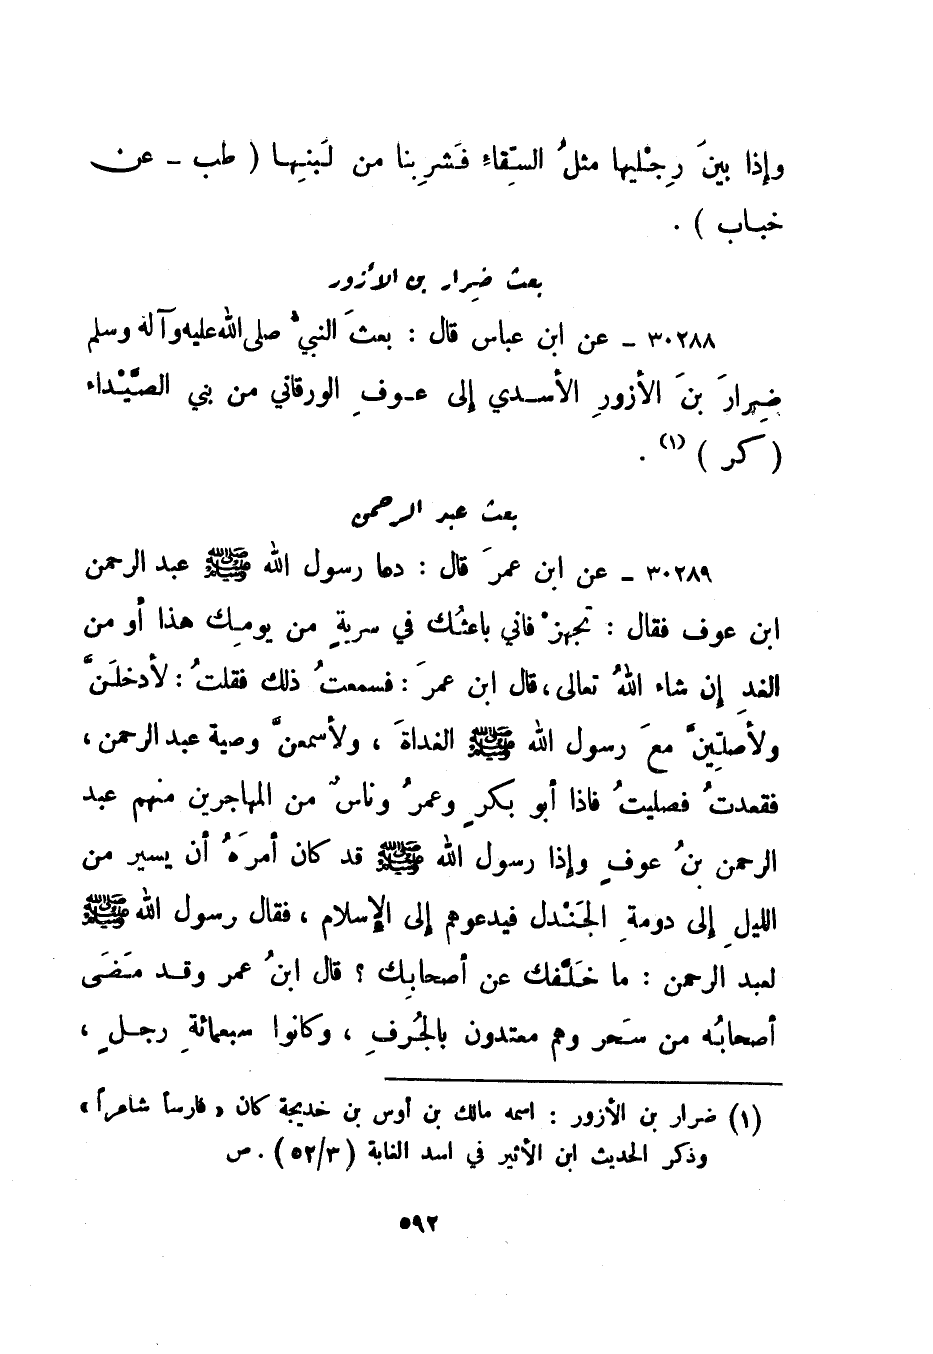 وإذا بينَ رِجْليها مثلُ السِّقاءِ فَشرِبنا من لَبَنِها ( طب ـ عن
خباب ) .
بعث ضرار بن الأزور
٣٠٢٨٨ ـ عن ابن عباس قال : بعثَ النبيُّ صلى الله عليه وآله وسلم
ضِرارَ بنَ الأزورِ الأسدي إلى عوفٍ الورقاني من بني الصَّيْداء
( كر ) (١) .
بعث عبد الرحمن
٣٠٢٨٩ ـ عن ابن عمرَ قال : دعا رسول الله ﷺ عبد الرحمن
ابن عوف فقال : تجهزْ فاني باعثُك في سريةٍ من يومِك هذا أو من
الغدِ إن شاء اللهُ تعالى ، قال ابن عمرَ : فسمعتُ ذلك فقلتُ : لأدخلَنَّ
ولأصلِّينَّ معَ رسول الله ﷺ الغداةَ ، ولأسمعنَّ وصية عبد الرحمن ،
فقعدتُ فصليتُ فاذا أبو بكرٍ وعمرُ وناسٌ من المهاجرين منهم عبد
الرحمن بنُ عوفٍ وإذا رسول الله ﷺ قد كان أمرَهُ أن يسير من
الليلِ إلى دومةِ الجَنْدل فيدعوهم إلى الإسلام ، فقال رسول الله ﷺ
لعبد الرحمن : ما خَلَّفك عن أصحابِك ؟ قال ابنُ عمر وقد مَضَى
أصحابُه من سَحر وهم معتدون بالجُرفِ ، وكانوا سبعمائةِ رجلٍ ،
(١) ضرار بن الأزور : اسمه مالك بن أوس بن خديجة كان « فارساً شاعراً »
وذكر الحديث ابن الأثير في اسد الغابة ( ٥٢/٣ ) . ص
٥٩٢